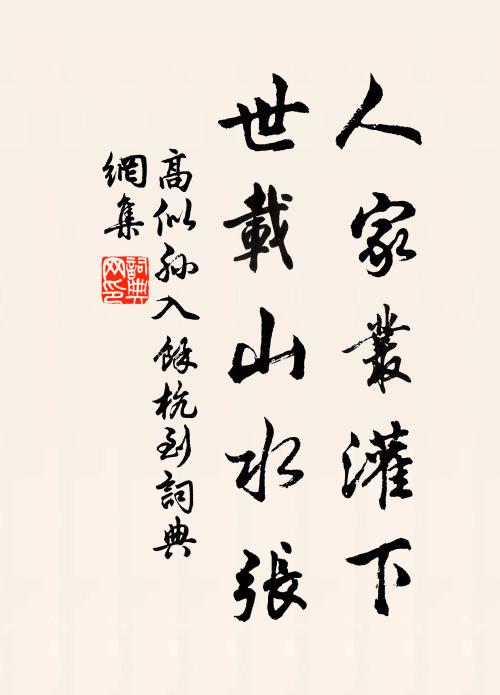 人家叢灌下
世載山水張
高似孫入餘杭到詞典
網集
詞典網印